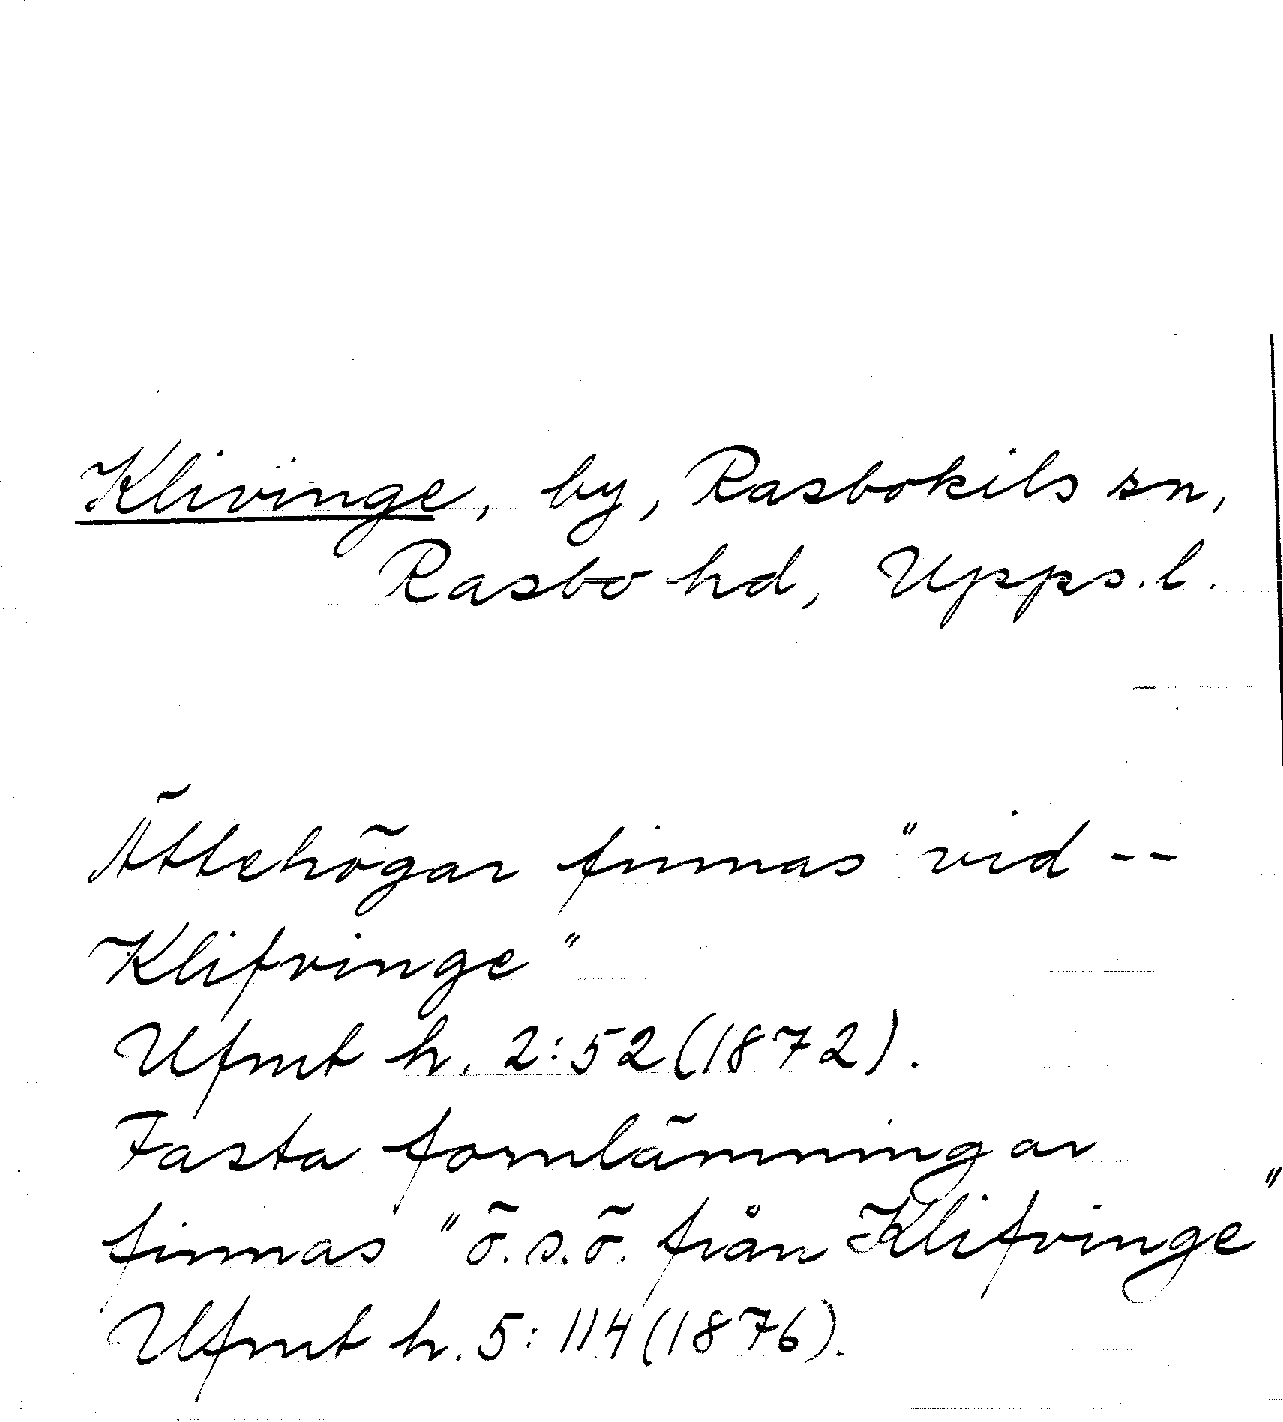 Klivinge, by, Rasbokils sn,
Rasbo hd, Upps.l.
Ättehögar finnas "vid --
Klifvinge"
Ufmt h. 2:52(1872).
Fasta fornlämningar
finnas "ö.s.ö. från Klifvinge"
Ufmt h. 5:114(1876).